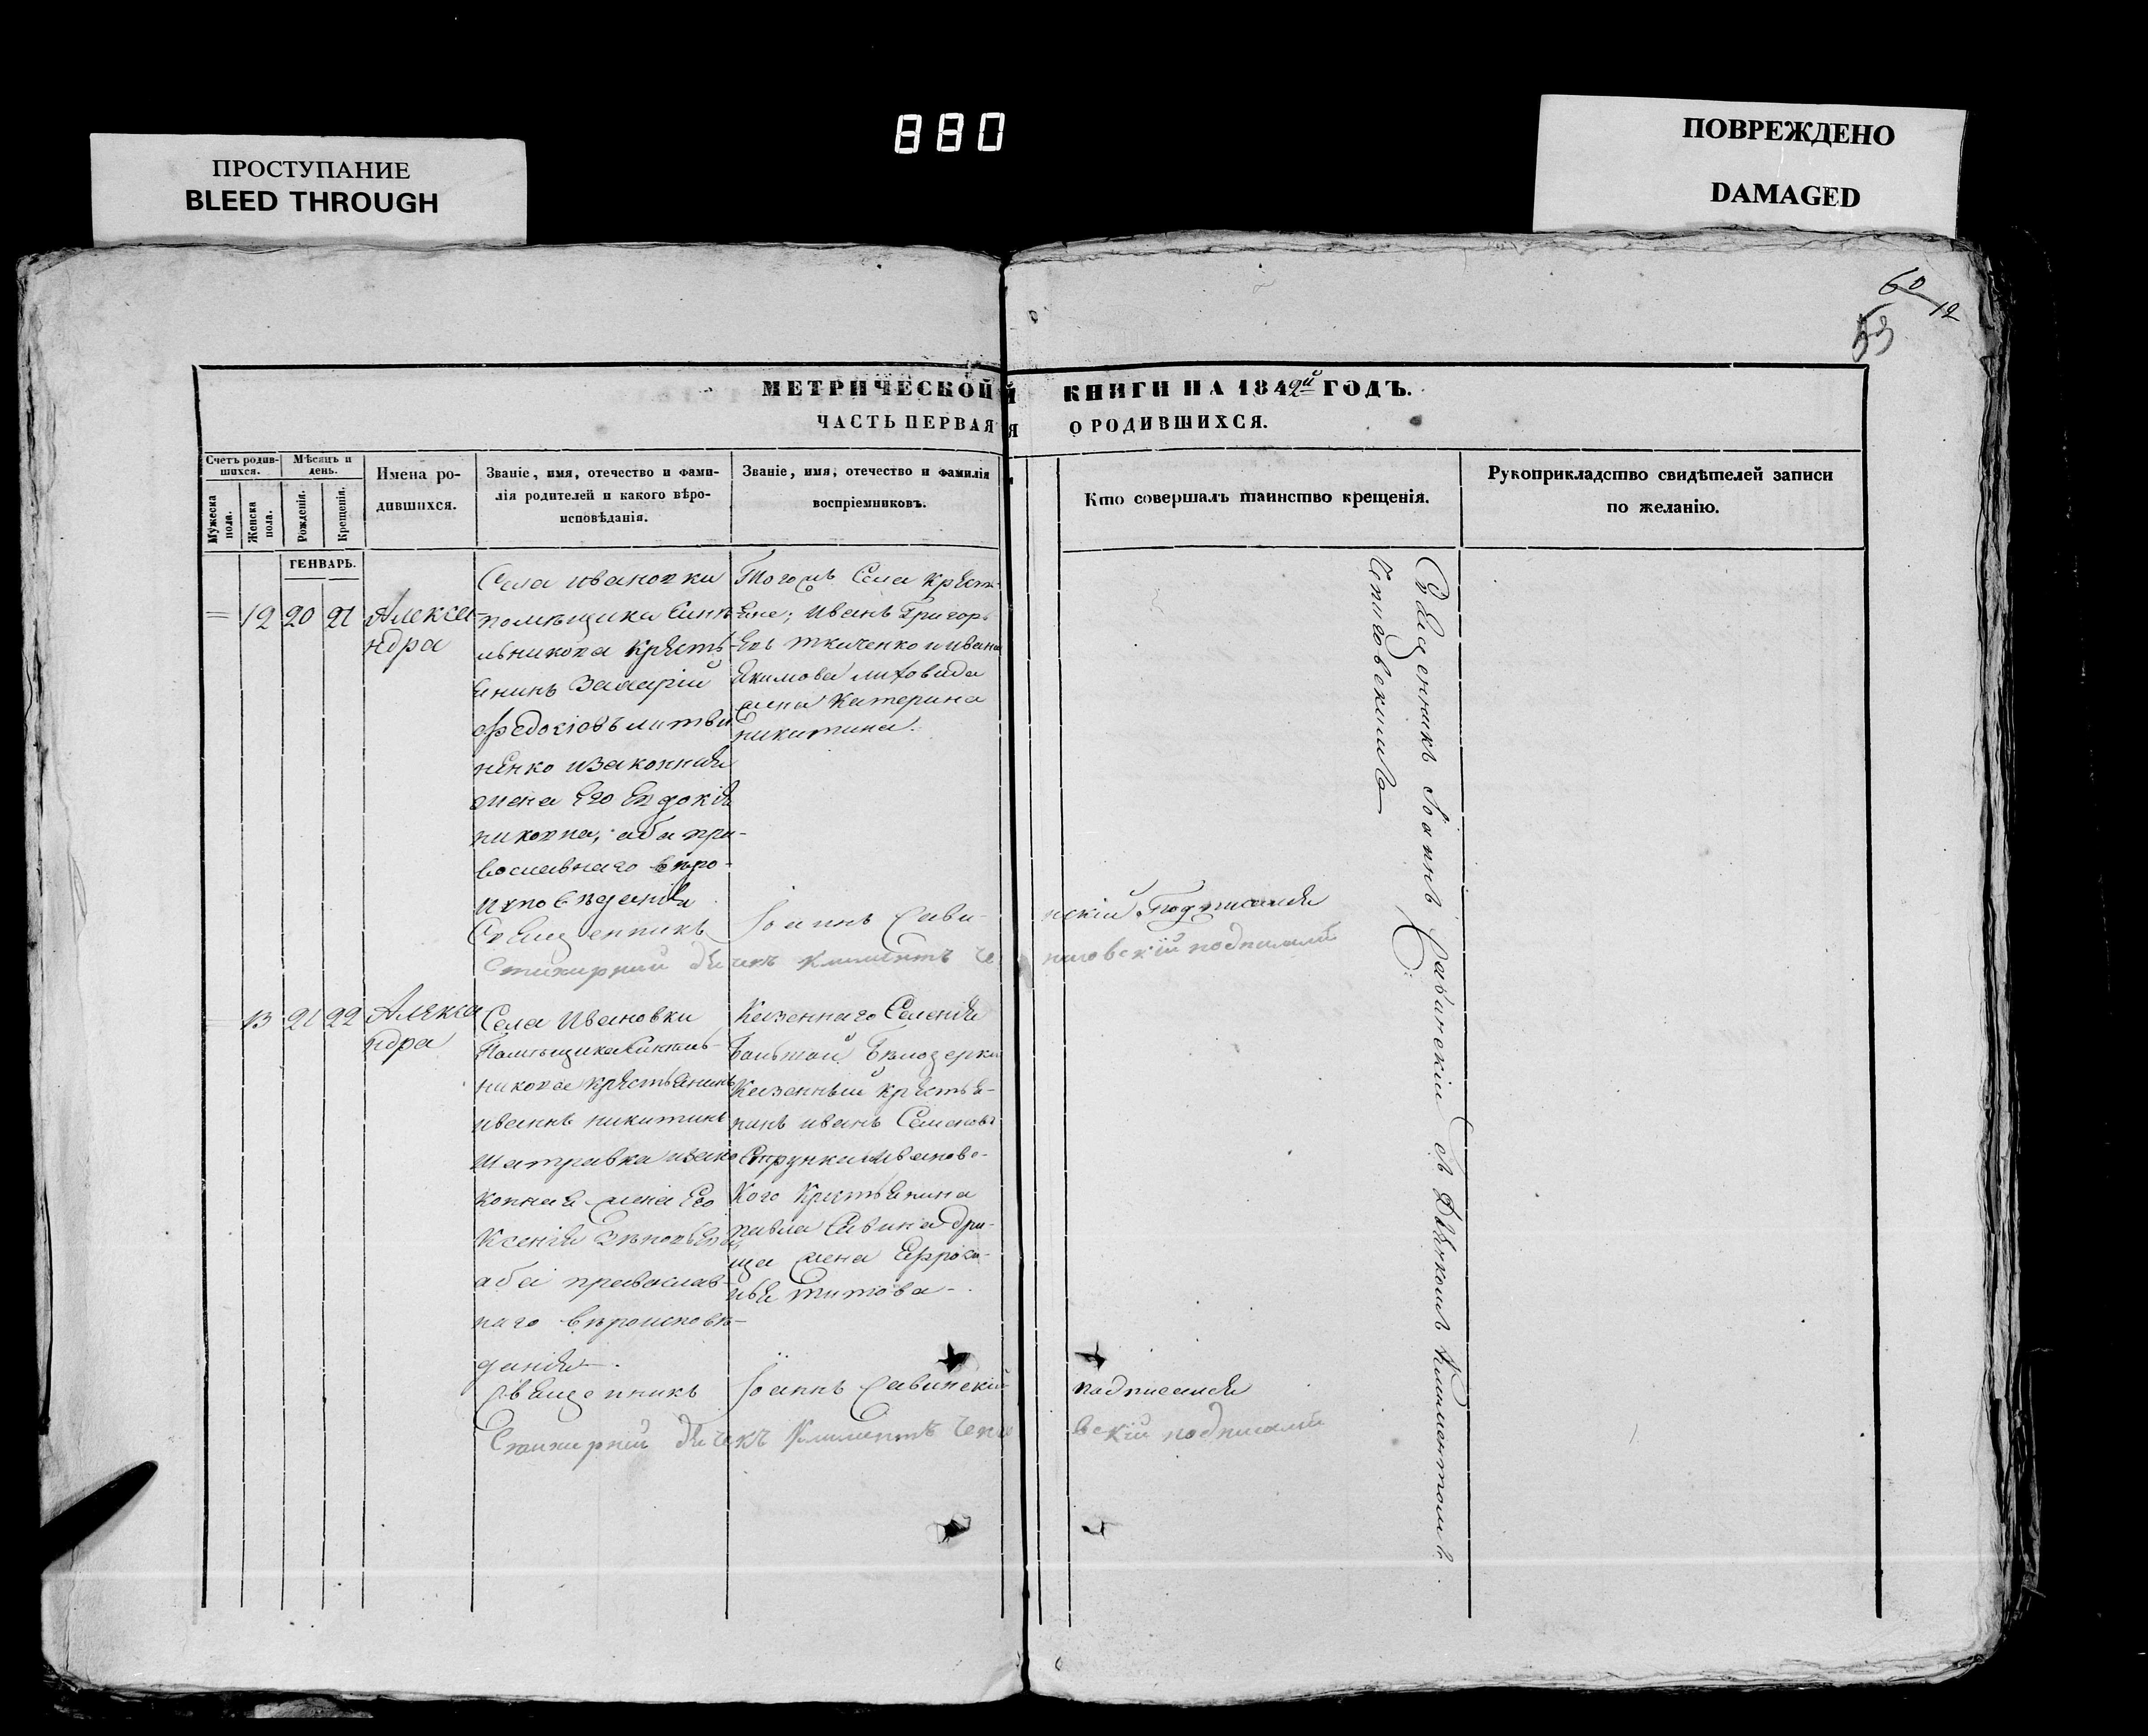 880
ПРОСТУПАНИЕ
BLEED THROUGH
ПОВРЕЖДЕНО
DAMAGED
60
12
53
МЕТРИЧЕСКОЙ КНИГИ НА 1842й ГОДЪ.
ЧАСТЬ ПЕРВАЯ О РОДИВШИХСЯ.
Счетъ родив-
шихся.
Мужеска пола.
Женска пола.
Мѣсяцъ и
день.
Рожденія.
Крещенія.
Имена ро-
дившихся.
Званіе, имя, отечество и фами-
лія родителей и какого вѣро-
исповѣданія.
Званіе, имя, отечество и фамилія
воспріемниковъ.
Кто совершалъ таинство крещенія.
Рукоприкладство свидѣтелей записи
по желанію.
ГЕНВАРЬ.
12 20 21
Алекса
ндра
Села ивановки
помѣщика Синѣ-
льникова Крестъ-
янинъ Захарій
Федосіовъ литви
ненко изаконная
жена Его Евдокія
аба пра-
вославнаго вѣро-
исповѣданія
Тогожъ Села Крест-
яне; Иванъ Григорь
Евъ ткаченко и ивана
Якимова
жена Катерина
никитина.
Священникъ Іоаннъ Сави-
нскій Подписался
Стихирный дьячекъ Климентъ Че
ниговскій подписалъ
13 21 22
Алекса
ндра
Села Ивановки
Помѣщика Синѣль-
никова крестьянинъ
иваннъ никитинъ
Шатравка изако
нная жена Его
Ксенія
аба православ-
наго вѣроисповѣ-
данія
Казеннаго Селенія
Бѣлозерки
Казенный крестья-
нинъ иванъ Семеновъ
Струнка Ивановс-
кого Крестьянина
павла Савина Дри-
ща жена Ефроси-
нья титова
Священникъ Іоаннъ Савинскій
подписался
Стихирный дьячекъ Климентъ Чени
вскій подписалъ
Священникъ Іоаннъ Савинскій съ Дьячкомъ Климентомъ